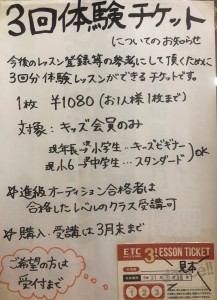 3回体験チケット
についてのお知らせ
今後のレッスン登録等の参考にして頂くために
3回分体験レッスンができるチケットです。
1枚 ¥1080 (お1人様1枚まで)
対象：キッズ会員のみ
現年長〜小学生…キッズビギナー
現小6〜中学生…スタンダード
OK
☆進級オーディション合格者は
合格したレベルのクラス受講可
☆購入、受講は3月末まで
ご希望の方は
受付まで
ETC
3 LESSON TICKET
見本
1 2 3